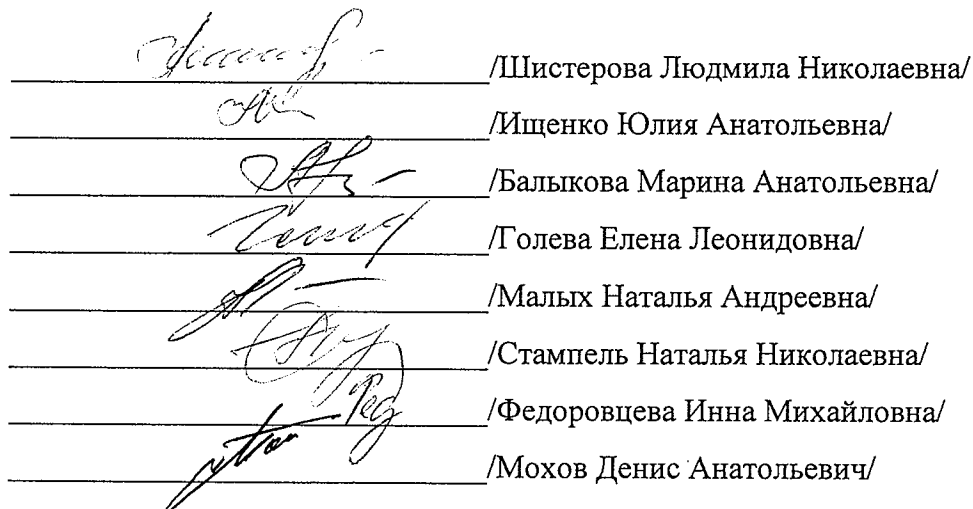 /Шистерова Людмила Николаевна/
/Ищенко Юлия Анатольевна/
/Балыкова Марина Анатольевна/
/Голева Елена Леонидовна/
/Малых Наталья Андреевна/
/Стампель Наталья Николаевна/
/Федоровцева Инна Михайловна/
/Мохов Денис Анатольевич/